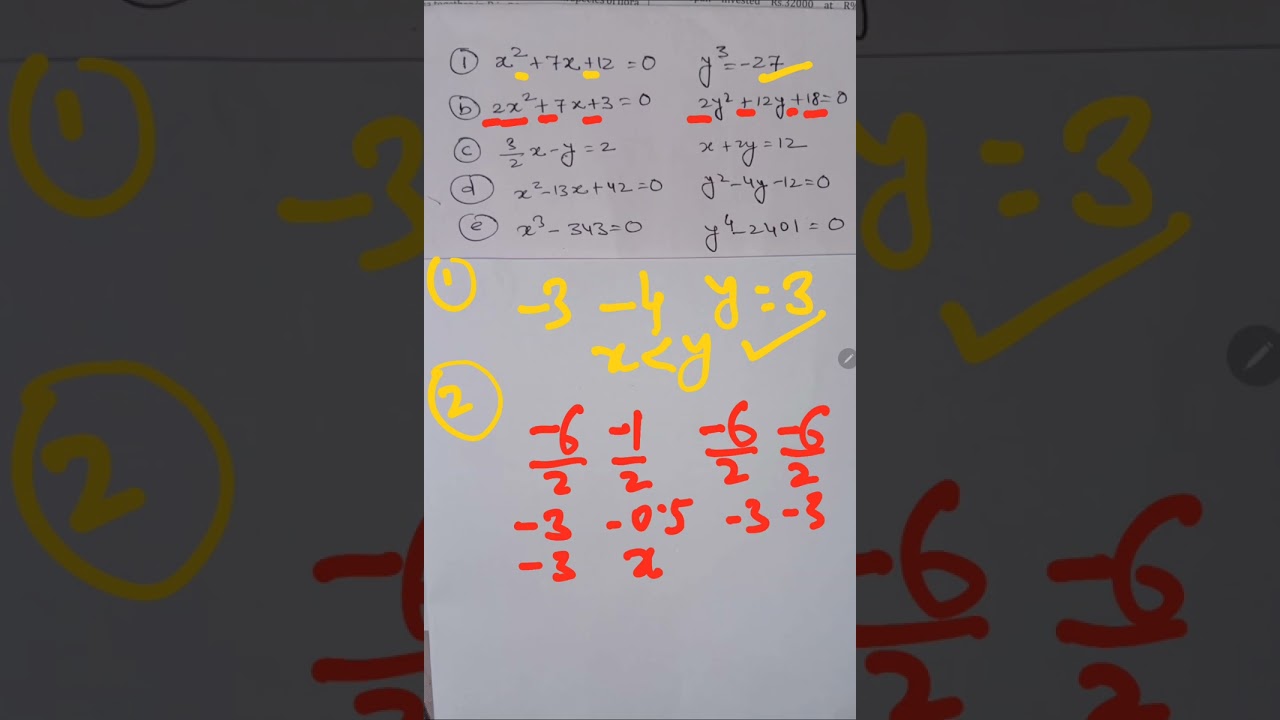 invested Rs.32000 at
① x² + 7x + 12 = 0 y³ = -27
ⓑ 2x² + 7x + 3 = 0 2y² + 12y + 18 = 0
ⓒ 3/2 x - y = 2 x + 2y = 12
ⓓ x² - 13x + 42 = 0 y² - 4y - 12 = 0
ⓔ x³ - 343 = 0 y⁴ - 2401 = 0
① -3 -4 y = 3
x < y
②
-6/2 -1/2 -6/2 -6/2
-3 -0.5 -3 -3
-3 x